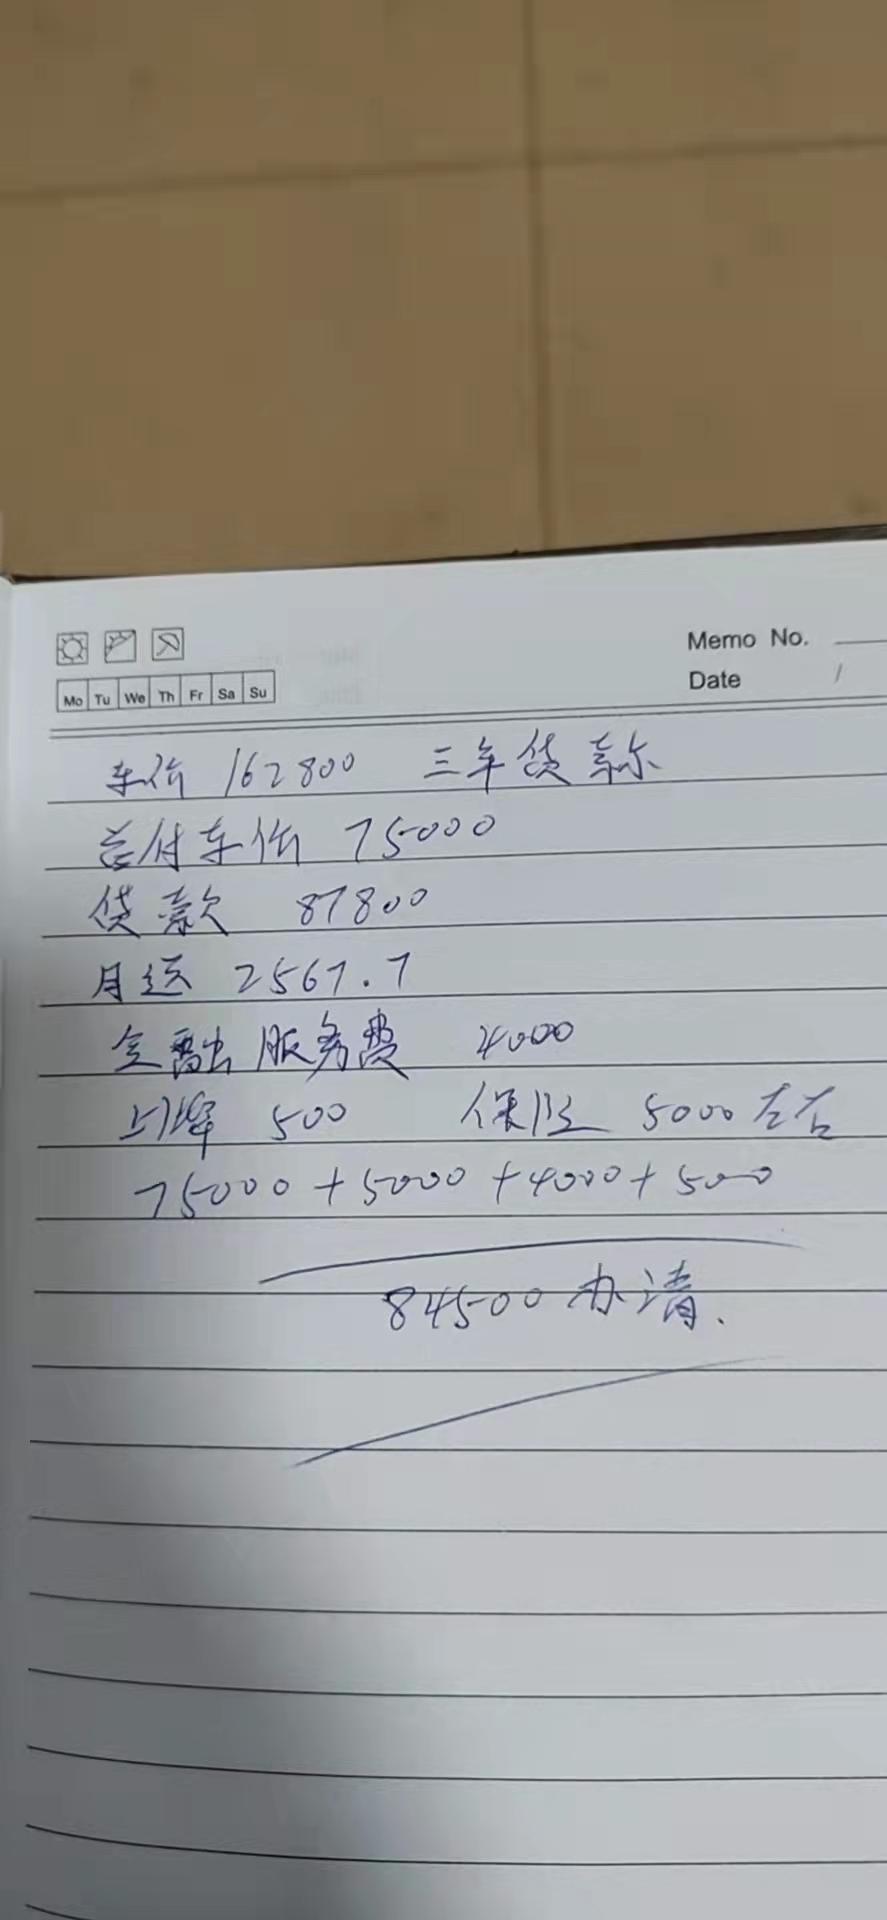 Memo No.
Mo Tu We Th Fr Sa Su
Date /
车价 162800 三年贷款
首付车价 75000
贷款 87800
月还 2567.7
金融服务费 4000
上牌 500 保险 5000左右
75000+5000+4000+500
84500办清.